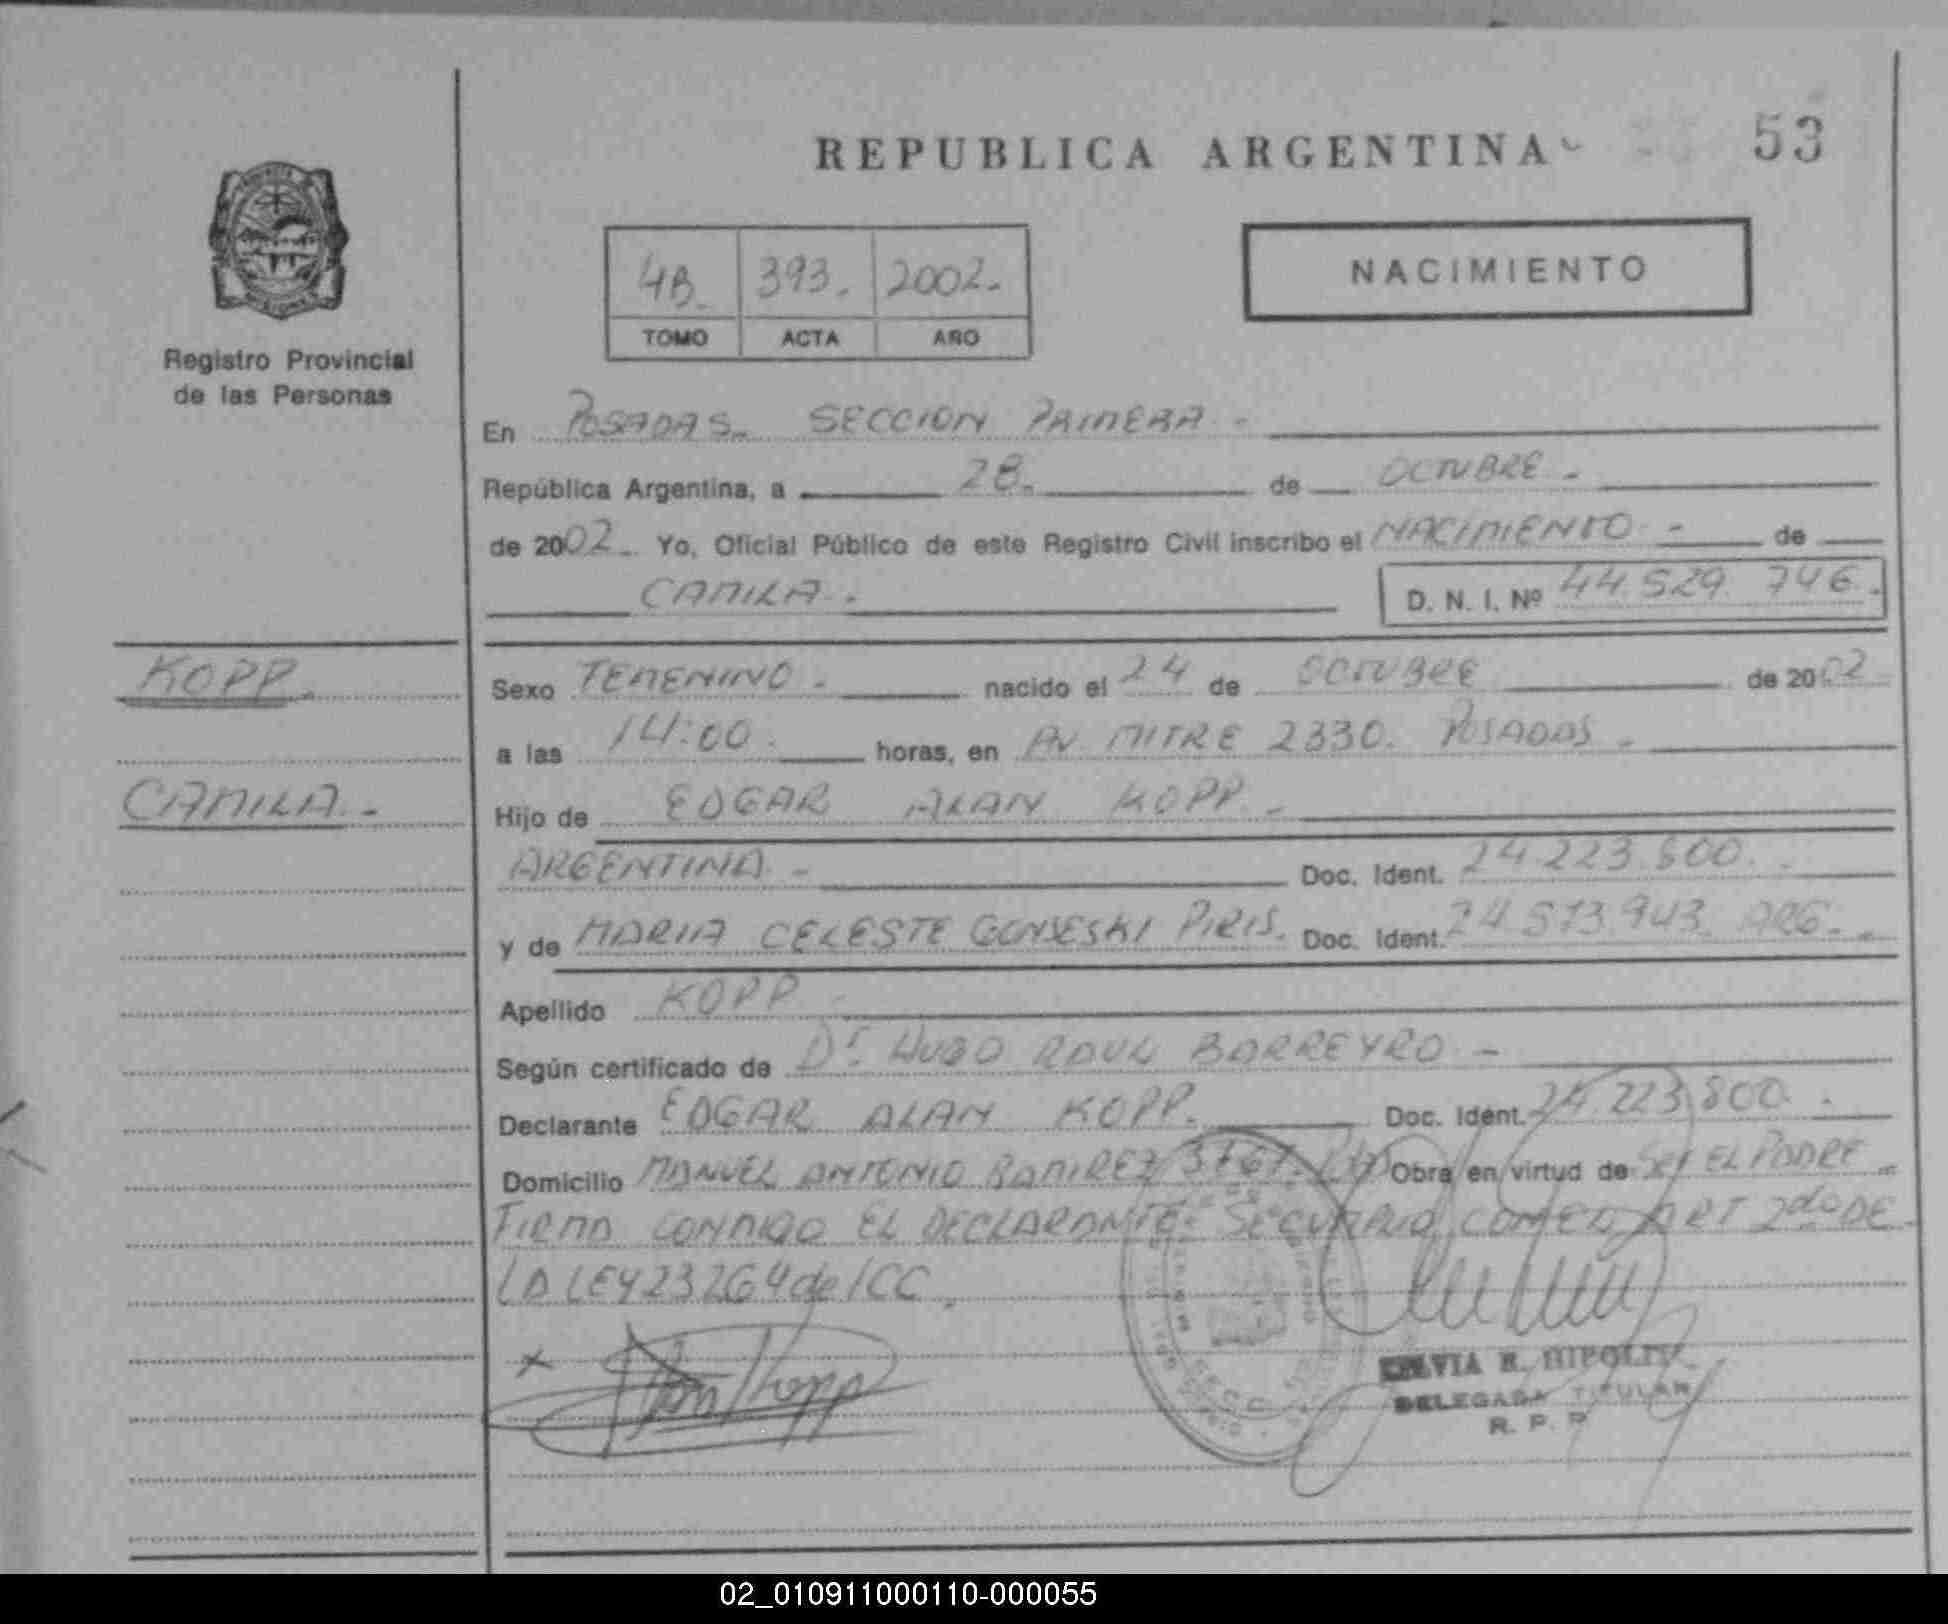 REPUBLICA ARGENTINA
53
Registro Provincial
de las Personas
4B. 393. 2002.
TOMO ACTA AÑO
NACIMIENTO
En POSADAS. SECCION PRIMERA -
República Argentina, a 28. de OCTUBRE -
de 2002. Yo, Oficial Público de este Registro Civil inscribo el NACIMIENTO - de
CAMILA. D. N. I. Nº 44.529.746.
KOPP.
CAMILA. -
Sexo FEMENINO - nacido el 24 de OCTUBRE de 2002
a las 14:00. horas, en AV. MITRE 2330. POSADAS -
Hijo de EDGAR ALAN KOPP -
ARGENTINA - Doc. Ident. 24.223.800.
y de MARIA CELESTE PIRIS. Doc. Ident. 24.573.943. ARG.
Apellido KOPP -
Según certificado de Dr. HUGO RAUL BARREYRO -
Declarante EDGAR ALAN KOPP. Doc. Ident. 24.223.800.
Domicilio MANUEL ANTONIO RAMIREZ Obra en virtud de Ser EL PADRE
FIRMA CONMIGO EL DECLARANTE. ART 2do DE
LA LEY 23264 del CC.
x Alan Kopp
R. HIPOLITO
DELEGADA TITULAR
R. P. P.
02_010911000110-000055